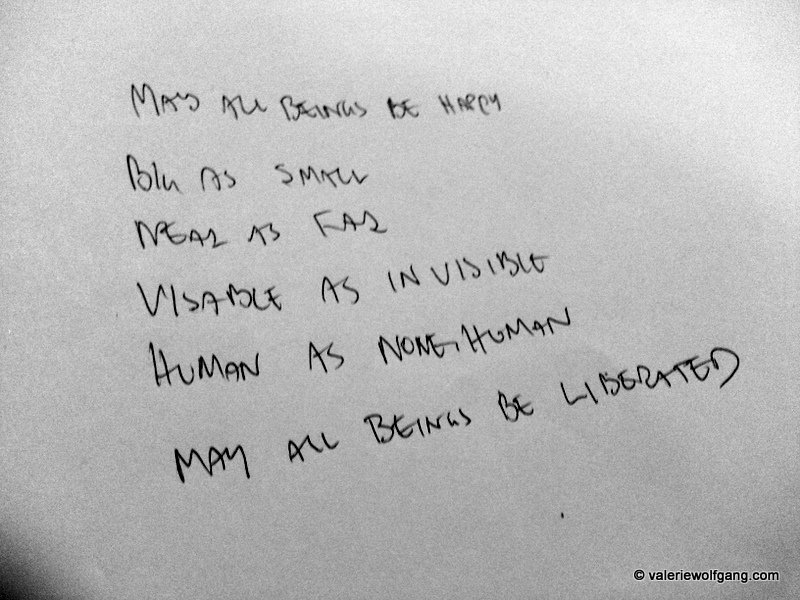 MAY ALL BEINGS BE HAPPY
BIG AS SMALL
NEAR AS FAR
VISABLE AS INVISIBLE
HUMAN AS NONE-HUMAN
MAY ALL BEINGS BE LIBERATED
© valeriewolfgang.com